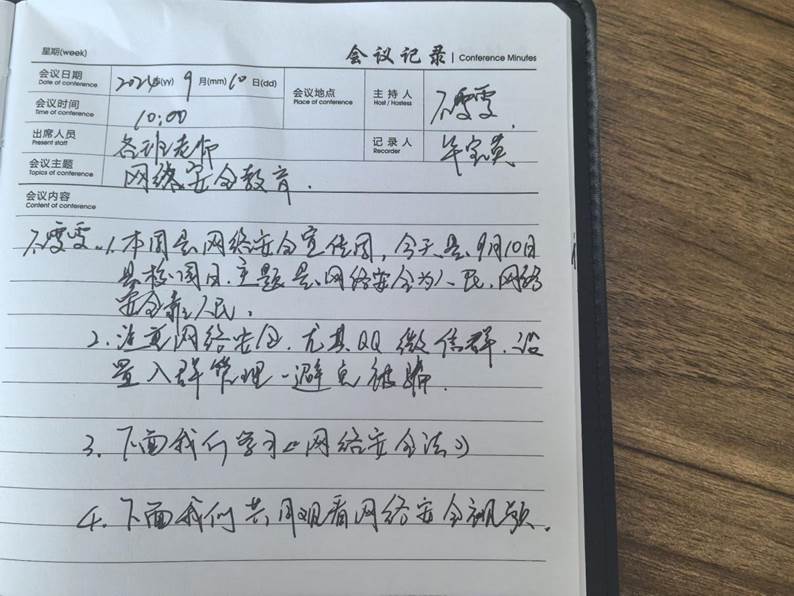 星期(week)
会议记录 | Conference Minutes
会议日期 Date of conference 2024年(yy) 9月(mm) 10日(dd) 会议地点 Place of conference 主持人 Host / Hostess 石雯雯
会议时间 Time of conference 10:00
出席人员 Present staff 各班老师 记录人 Recorder 毕宝英
会议主题 Topics of conference 网络安全教育.
会议内容
Content of conference
石雯雯:1.本周是网络安全宣传周,今天是9月10日
是校园日.主题是网络安全为人民,网络
安全靠人民.
2.注意网络安全.尤其QQ微信群.设
置入群管理,避免被骗.
3.下面我们学习《网络安全法》
4.下面我们共同观看网络安全视频.